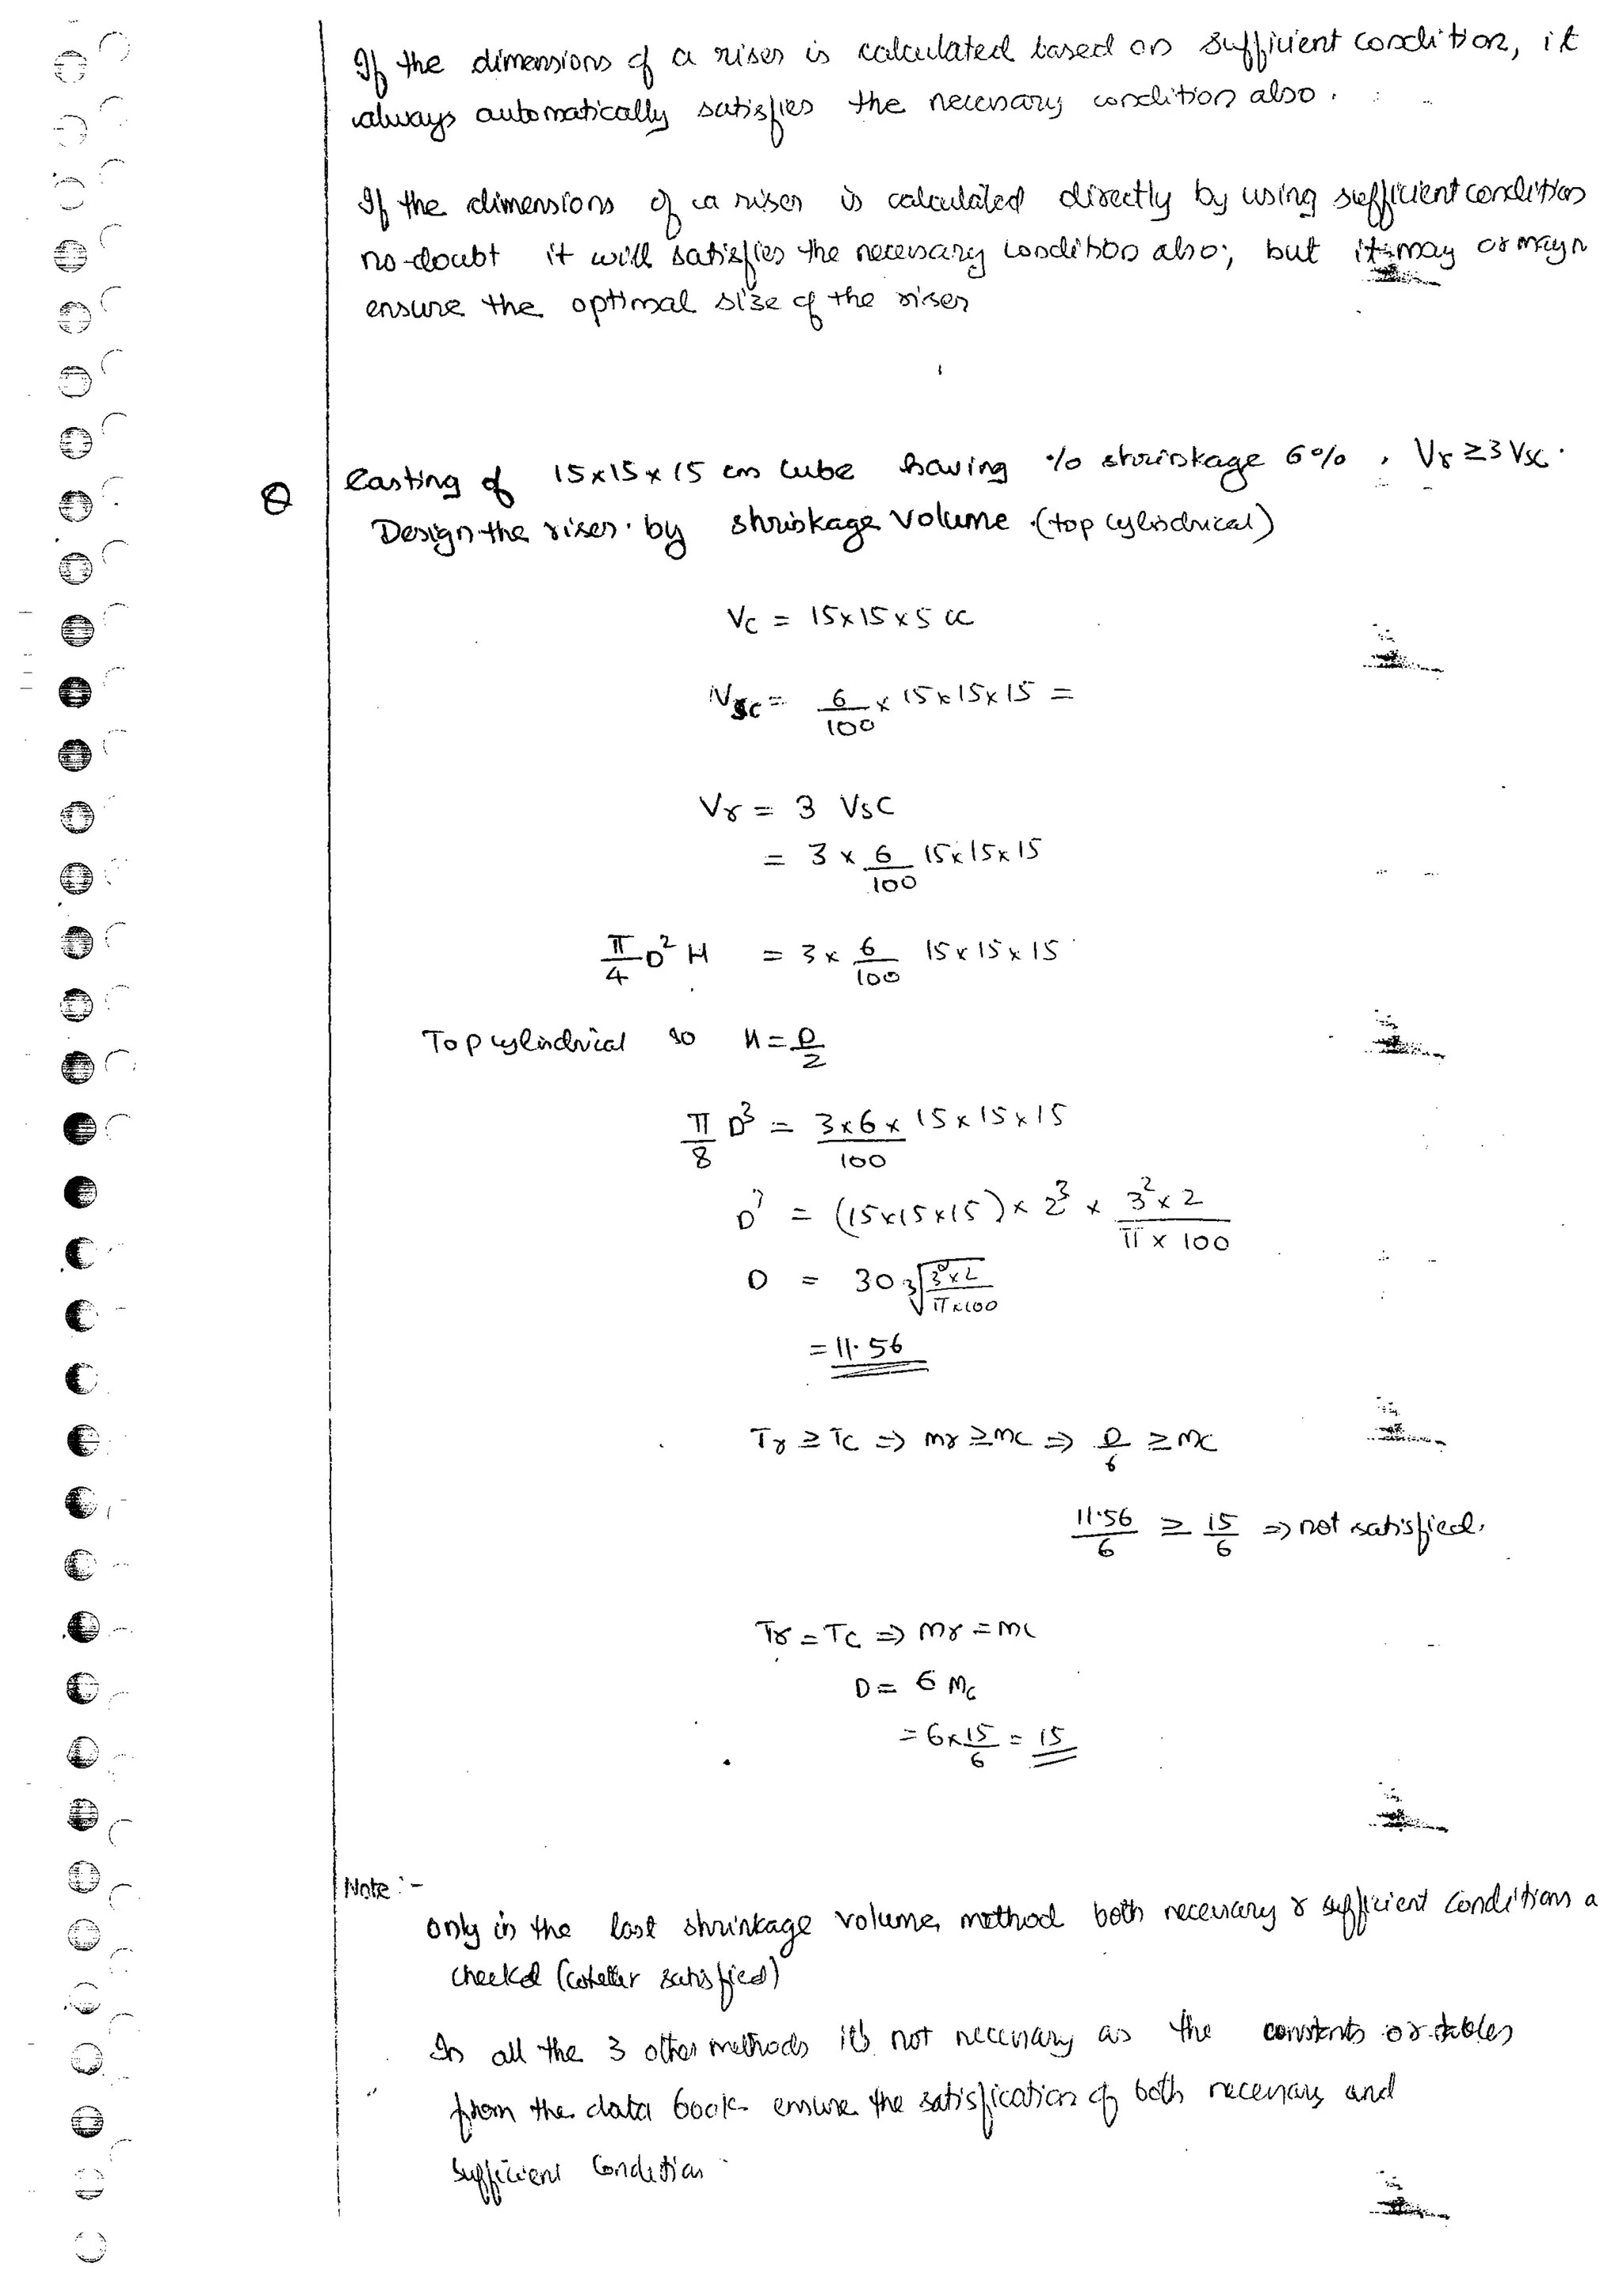 If the dimensions of a riser is calculated based on sufficient condition, it
always automatically satisfies the necessary condition also.
If the dimensions of a riser is calculated directly by using sufficient condition
no-doubt it will satisfies the necessary condition also; but it may or may n
ensure the optimal size of the riser
Q Casting of 15x15x15 cm cube having % shrinkage 6%, Vr ≥ 3 Vsc.
Design the riser by shrinkage volume (top cylindrical)
Vc = 15x15x5 cc
Vsc = 6/100 x 15x15x15 =
Vr = 3 Vsc
= 3 x 6/100 15x15x15
π/4 D² H = 3 x 6/100 15x15x15
Top cylindrical so H = D/2
π/8 D³ = 3x6x/100 15x15x15
D³ = (15x15x15) x 2³ x 3²x2/π x 100
D = 30 ∛(3²x2/πx100)
= 11.56
Tr ≥ Tc ⇒ mr ≥ mc ⇒ D/6 ≥ mc
11.56/6 ≥ 15/6 ⇒ not satisfied.
Tr = Tc ⇒ mr = mc
D = 6 Mc
= 6x15/6 = 15
Note :-
only in the last shrinkage volume method both necessary & sufficient conditions a
checked (satisfied)
In all the 3 other methods it's not necessary as the constants or tables
from the data book ensure the satisfication of both necessary and
sufficient Condition